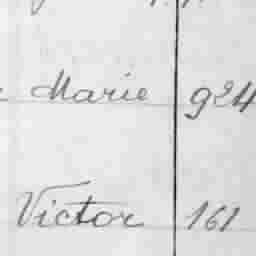 Marie 924
Victor 161